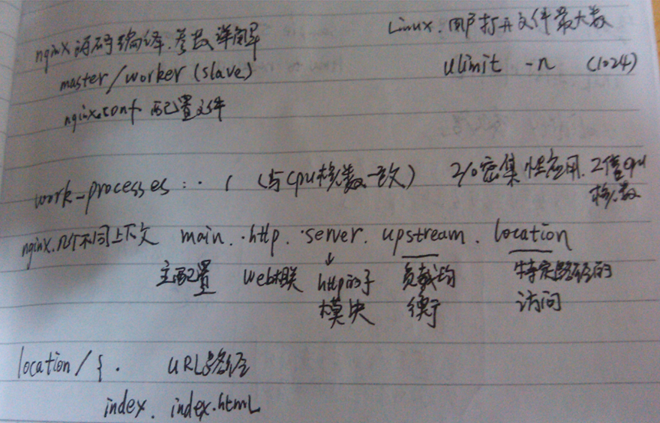 nginx 源码编译.参数详解
master/worker (slave)
nginx.conf 配置文件
Linux.用户打开文件最大数
ulimit -n (1024)
work-processes: 1 (与cpu核数一致) I/O密集性应用.2倍cpu
核数
nginx.几个不同上下文 main. http. server. upstream. location
主配置 web相联 http的子 负载均 特定路径的
模块 衡 访问
location / { . URL路径
index. index.html